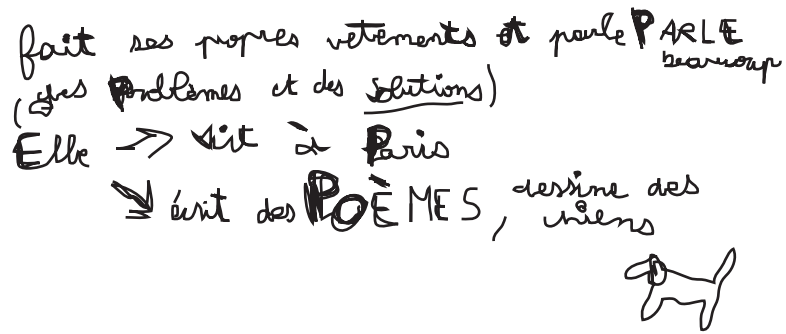 fait ses propres vetements et parle PARLE
beaucoup
(des Problèmes et des solutions)
Elle → vit à Paris
écrit des POÈMES, dessine des
chiens